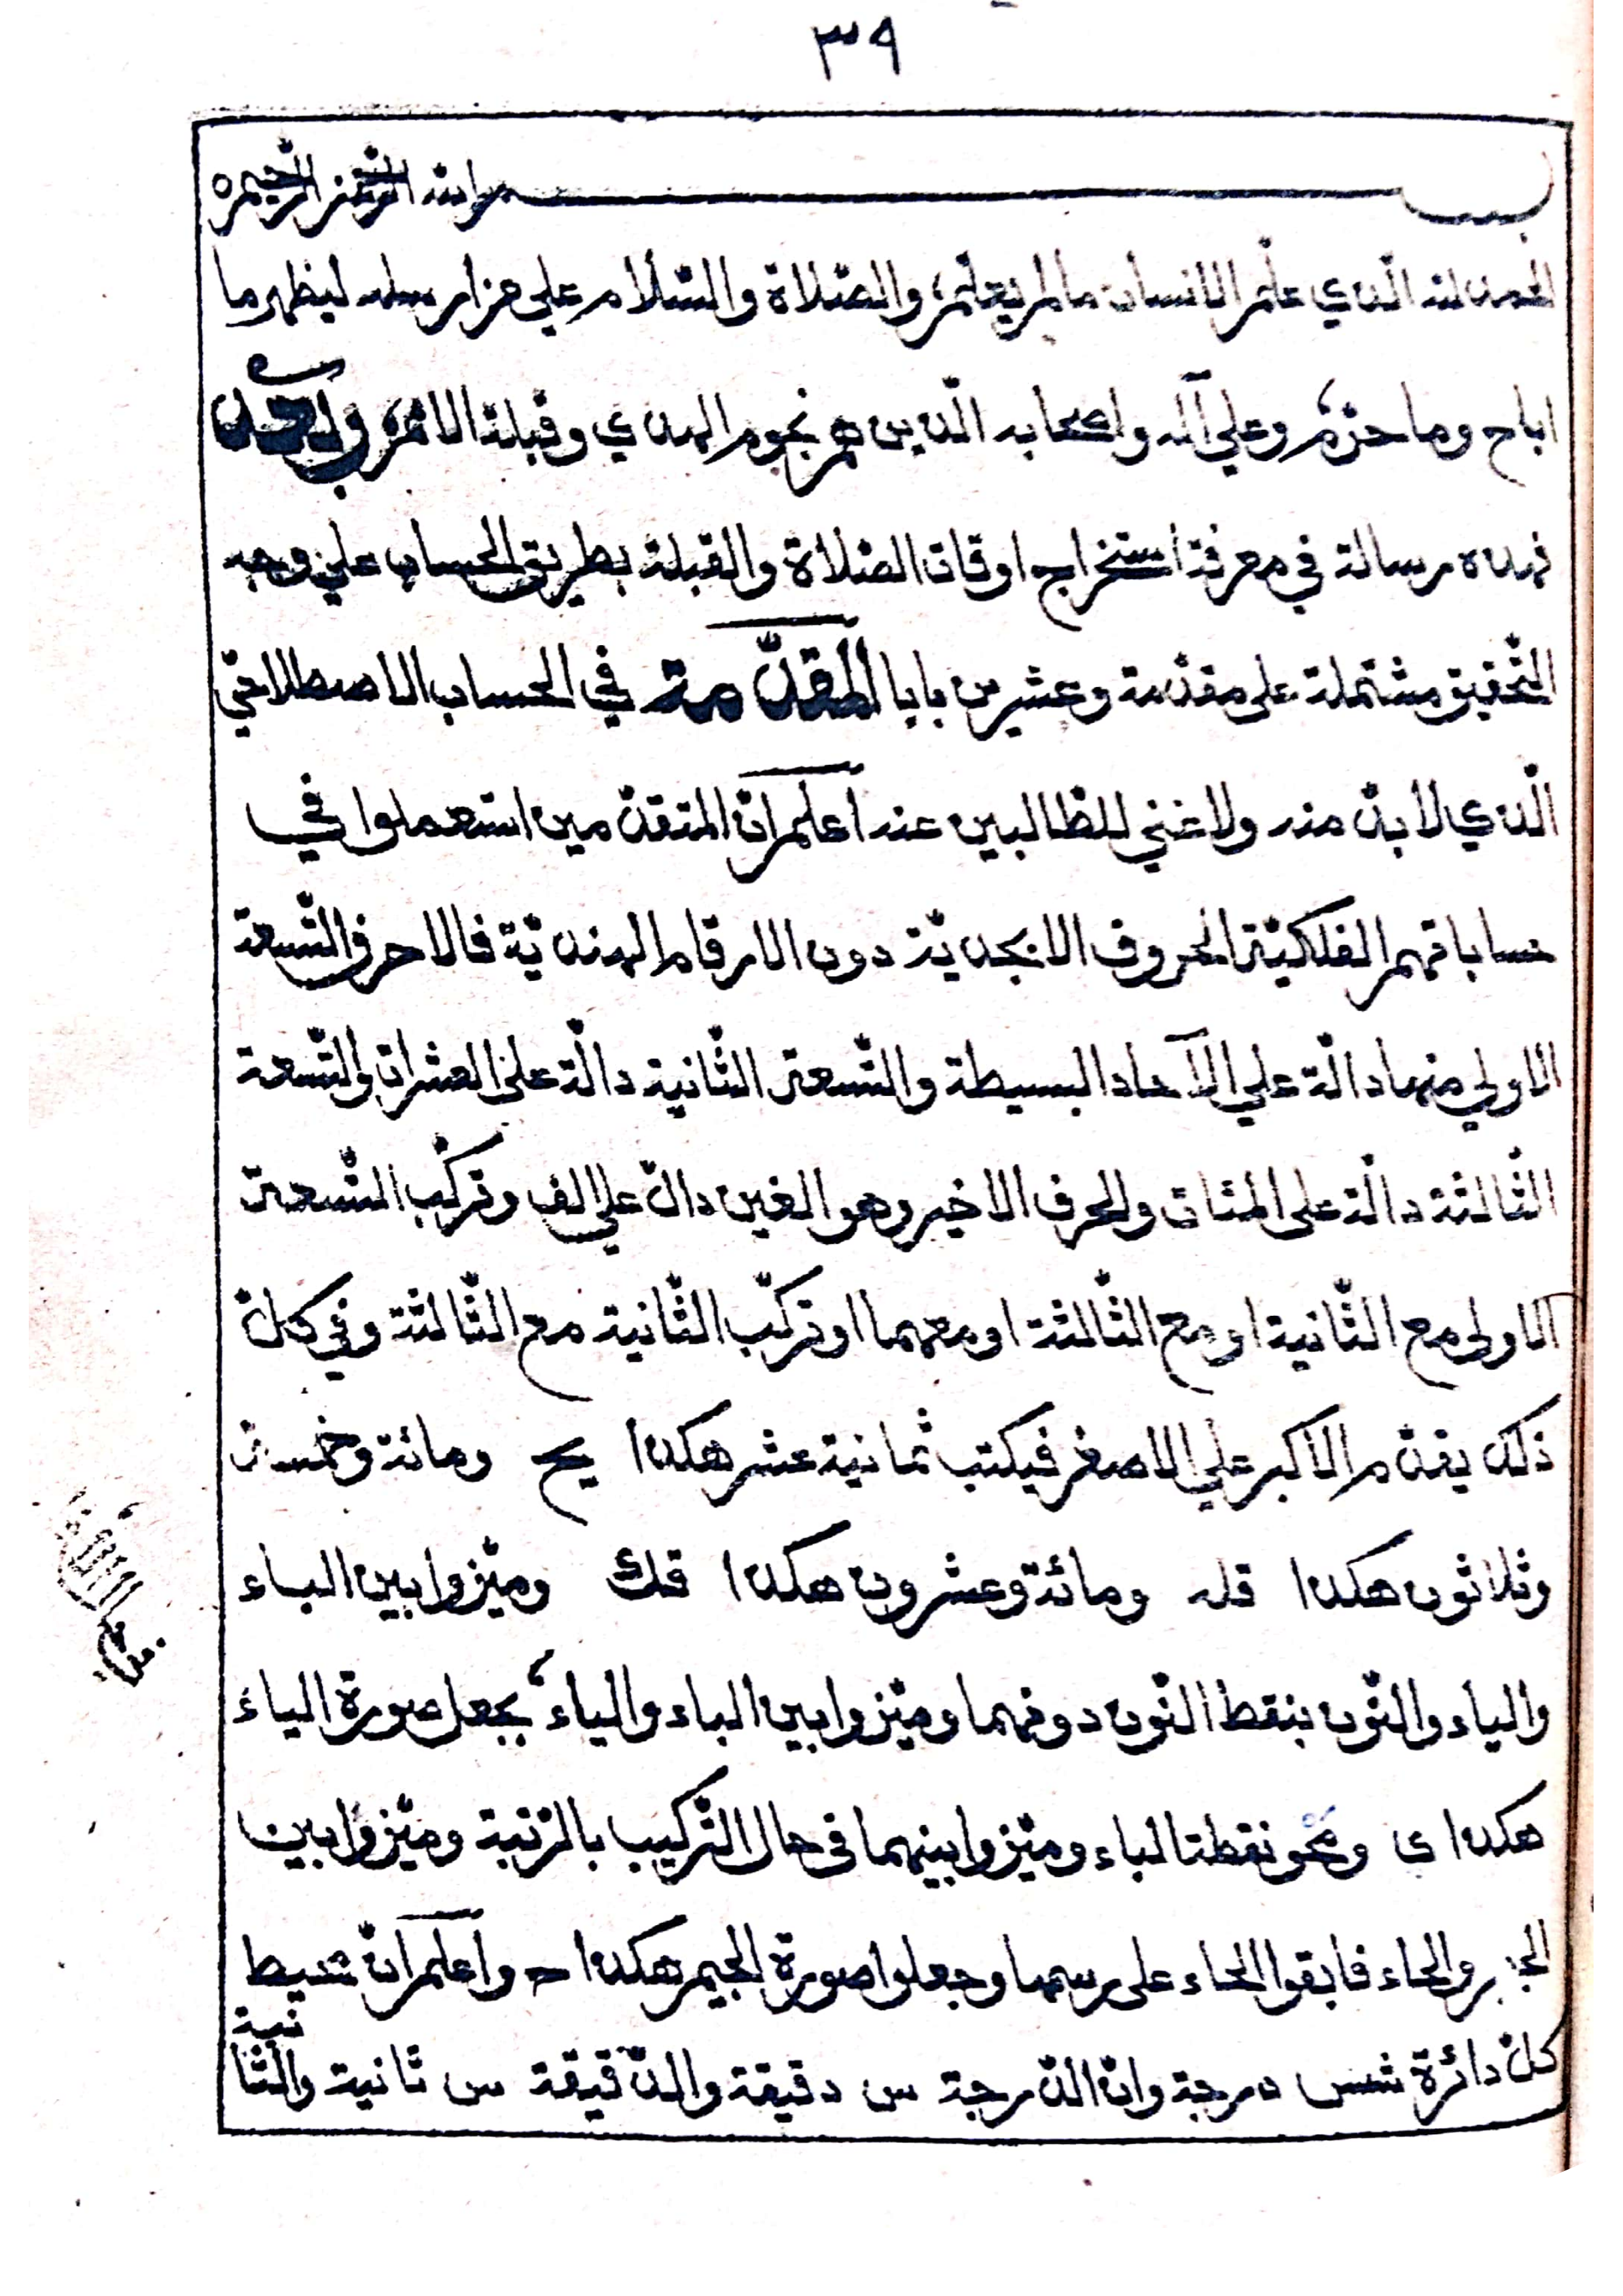 ٣٩
بسم الله الرحمن الرحيم
الحمد لله الّذي علّم الانسان ما لم يعلم، والصّلاة والسّلام علي من ارسله ليظهر ما
اباح وما حرّم، وعلي آله واصحابه الّذين هم نجوم الهدي وقبلة الامّم، وبعد
فهذه رسالة في معرفة استخراج اوقات الصّلاة والقبلة بطريق الحساب علي وجه
التّحقيق مشتملة على مقدّمة وعشرين بابا المقدّمة في الحساب الاصطلاحيّ
الّذي لا بدّ منه ولا غني للطّالبين عنه اعلم انّ المتقدّمين استعملوا في
حساباتهم الفلكيّة الحروف الابجديّة دون الارقام الهنديّة فالاحرف التّسعة
الاولي منها دالّة علي الآحاد البسيطة والتّسعة الثّانية دالّة على العشرات والتّسعة
الثّالثة دالّة على المئات والحرف الاخير وهو الغين دالّ علي الف وتركّب التّسعة
الاولى مع الثّانية او مع الثّالثة او معهما او تركّب الثّانية مع الثّالثة وفي كلّ
ذلك يقدّم الاكبر علي الاصغر فيكتب ثمانية عشر هكذا يح ومائة وخمسة
وثلاثون هكذا قله ومائة وعشرون هكذا قك وميّزوا بين الباء
والياء والنّون بنقط النّون دونهما وميّزوا بين الباء والياء، بجعل صورة الياء
هكذا ى ومحو نقطة الباء وميّزوا بينهما فى حال التّركيب بالمرتبة وميّزوا بين
الجيم والحاء فابقوا الحاء على رسمها وجعلوا صورة الجيم هكذا حـ واعلم انّ محيط
كلّ دائرة شس درجة وانّ الدّرجة س دقيقة والدّقيقة س ثانية والثّا
نية